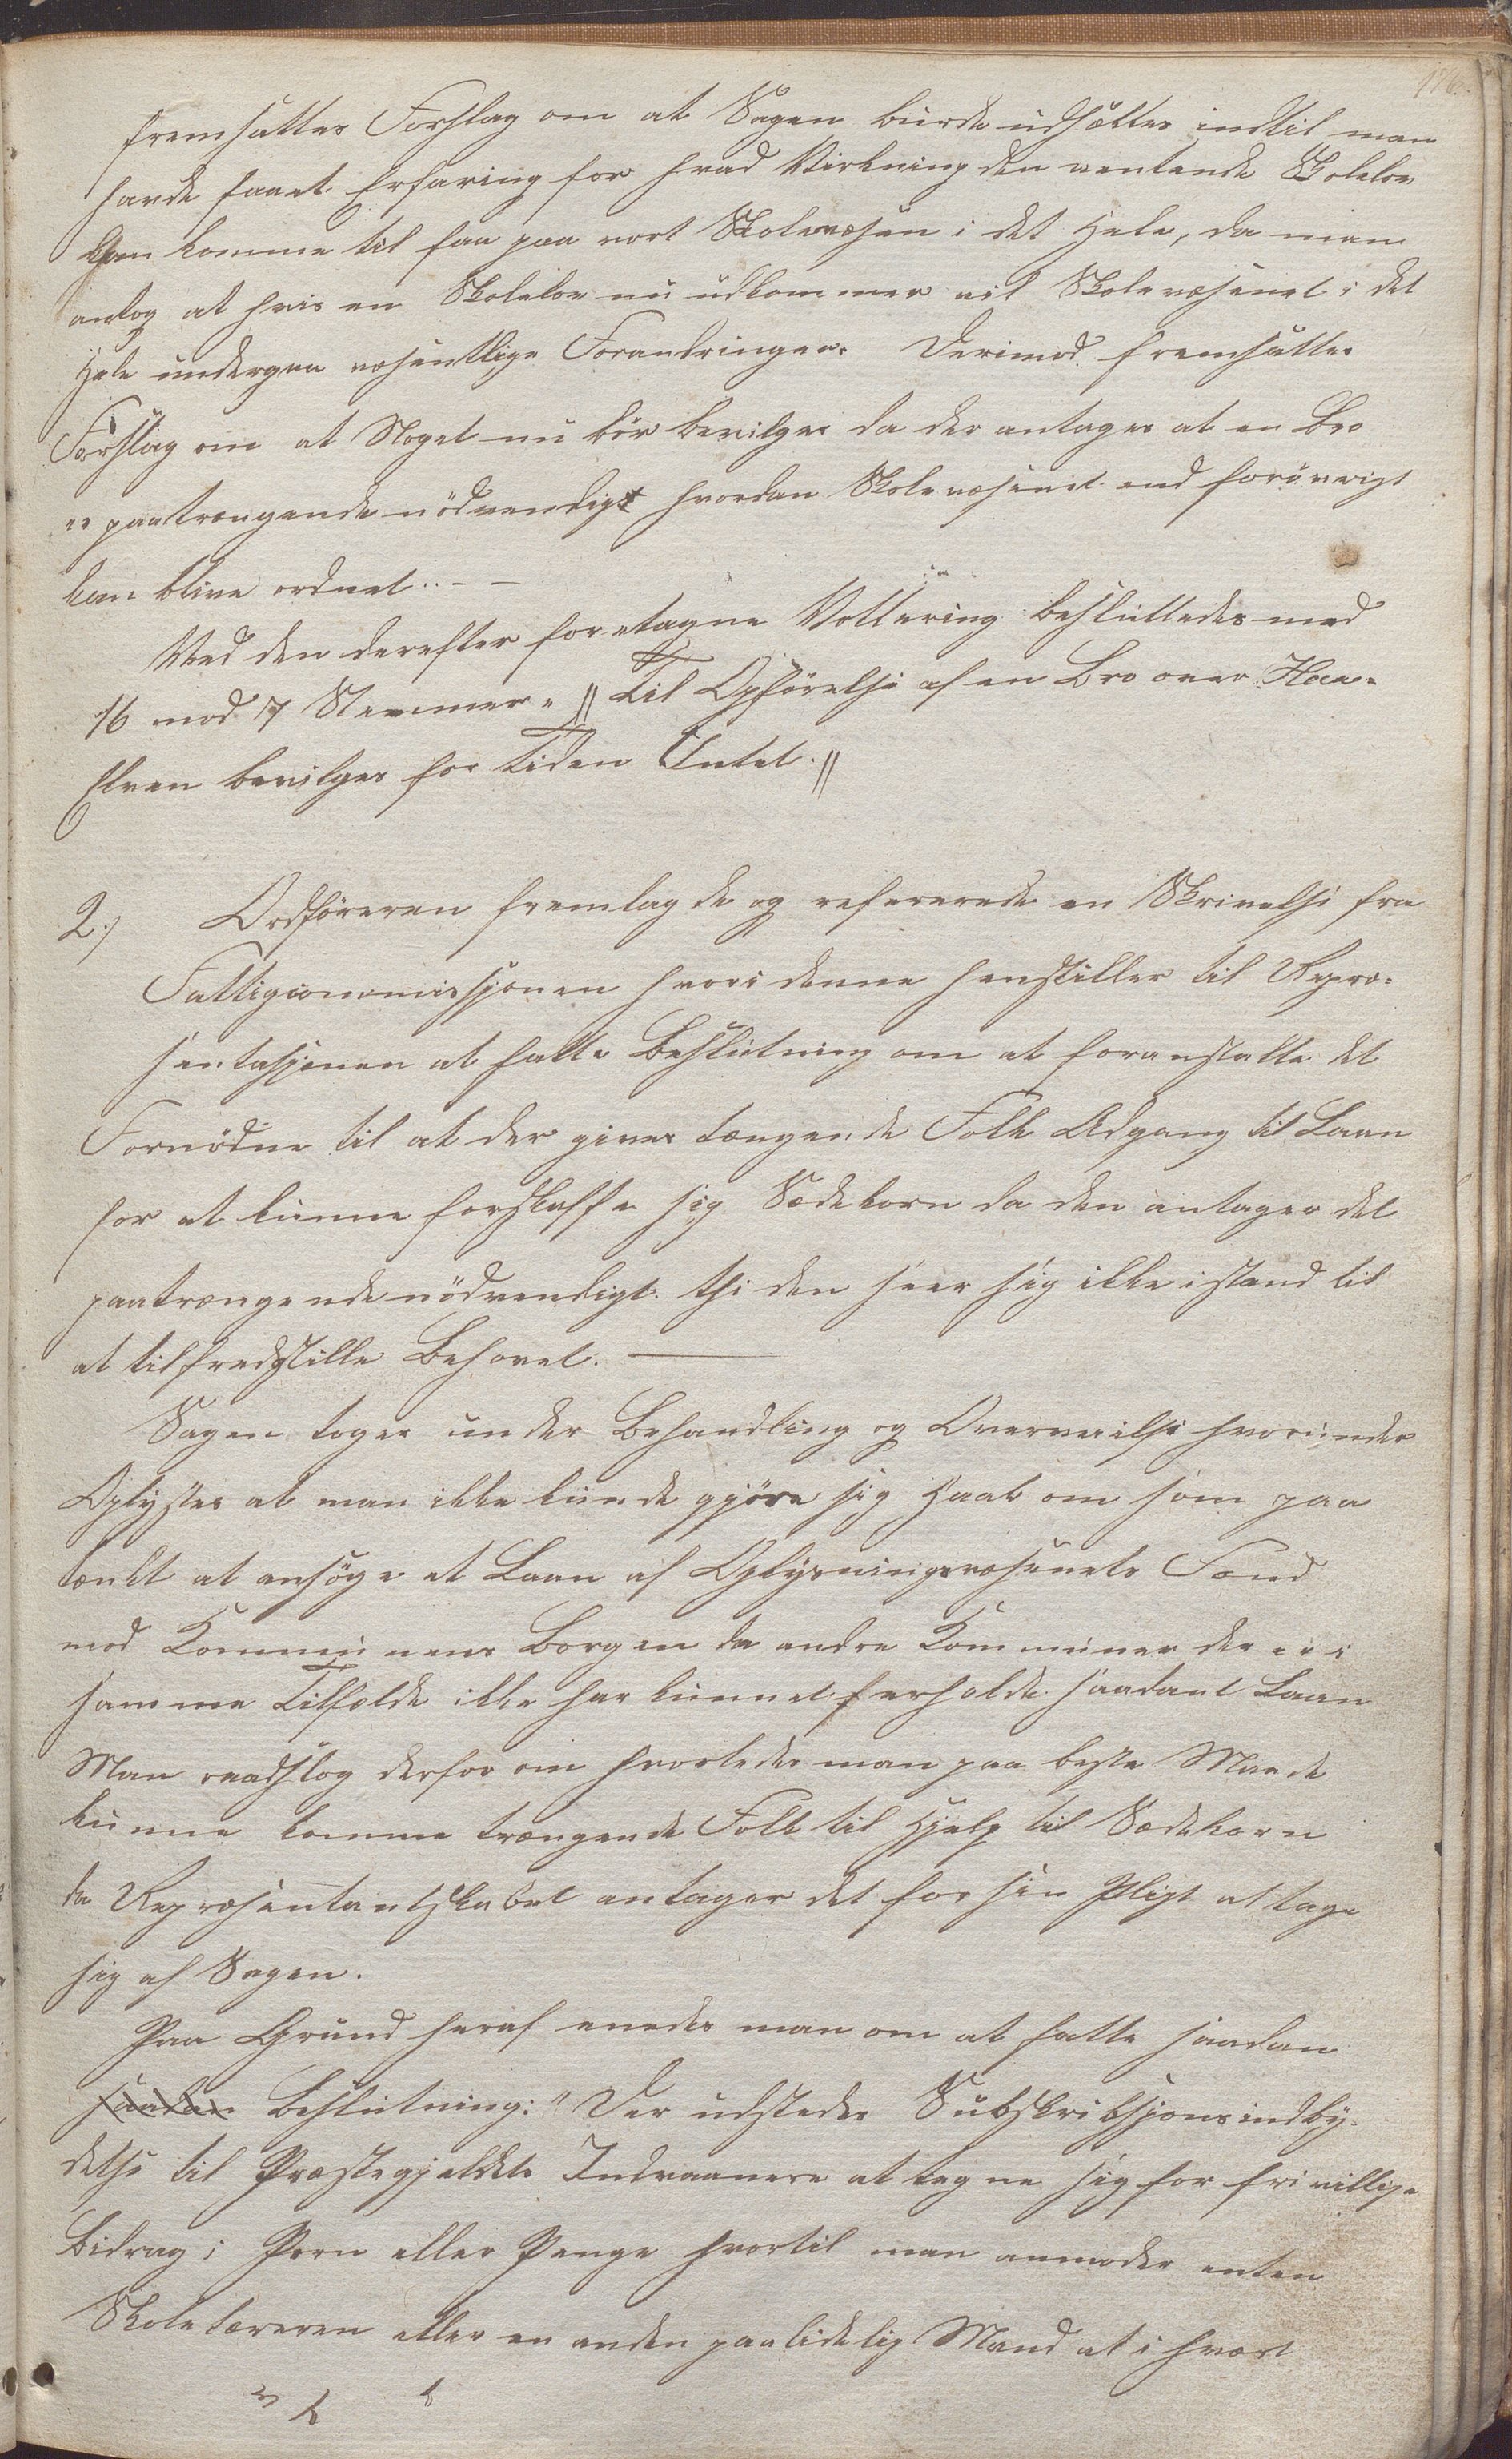 fremsattes Forslag om at Sagen burde udsættes indtil man
havde faaet Erfaring for hvad Virkning den ventende Skolelov
kan komme til faa paa vort Skolevæsen i det Hele, da man
antog at hvis en Skolelov nu udkommer vil Skolevæsenet i det
Hele undergaa væsentlige Forandringer. Derimod fremsattes
Forslag om at Noget nu bör bevilges da der antages at en Bro
er paatrængende nödvendigt hvordan Skolevæsenet end forövrigt
kan blive ordnet. –
Ved den derefter foretagne Vottering besluttedes med
16 mod 7 Stemmer. "Til Opförelse af en Bro over Haa-
Elven bevilges for Tiden Intet."
2.) Ordföreren fremlagde og refererede en Skrivelse fra
Fattigcommissjonen hvori denne henstiller til Repræ-
sentasjonen at fatte Beslutning om at foranstalte det
Fornödne til at der gives tængende Folk Adgang til Laan
for at kunne forskaffe sig Sædekorn da den antager det
paatrængende nödvendigt. thi den seer sig ikke istand til
at tilfredstille Behovet. –
Sagen toges under Behandling og Overveielse hvorunder
Oplystes at man ikke kunde gjöre sig Haab om som paa
tænkt at ansöge et Laan af Oplysningsvæsenets Fond
mod Kommunens Borgen da andre Kommuner der er i
samme Tilfælde ikke har kunnet erholde saadant Laan
Man raadslog derfor om hvorledes man paa beste Maade
kunne komme trængende Folk til Hjelp til Sædekorn
da Repræsentantskabet antager det for sin Pligt at tage
sig af Sagen.
Paa Grund heraf enedes man om at fatte saadan
saadan Beslutning: "Der udstedes Subskribsjonsindby-
delse til Præstegjeldets Indvaanere at tegne sig for frivillige
Bidrag i Korn eller Penge hvortil man anmoder enten
Skolelæreren eller en anden paalidelig Mand at i hvert